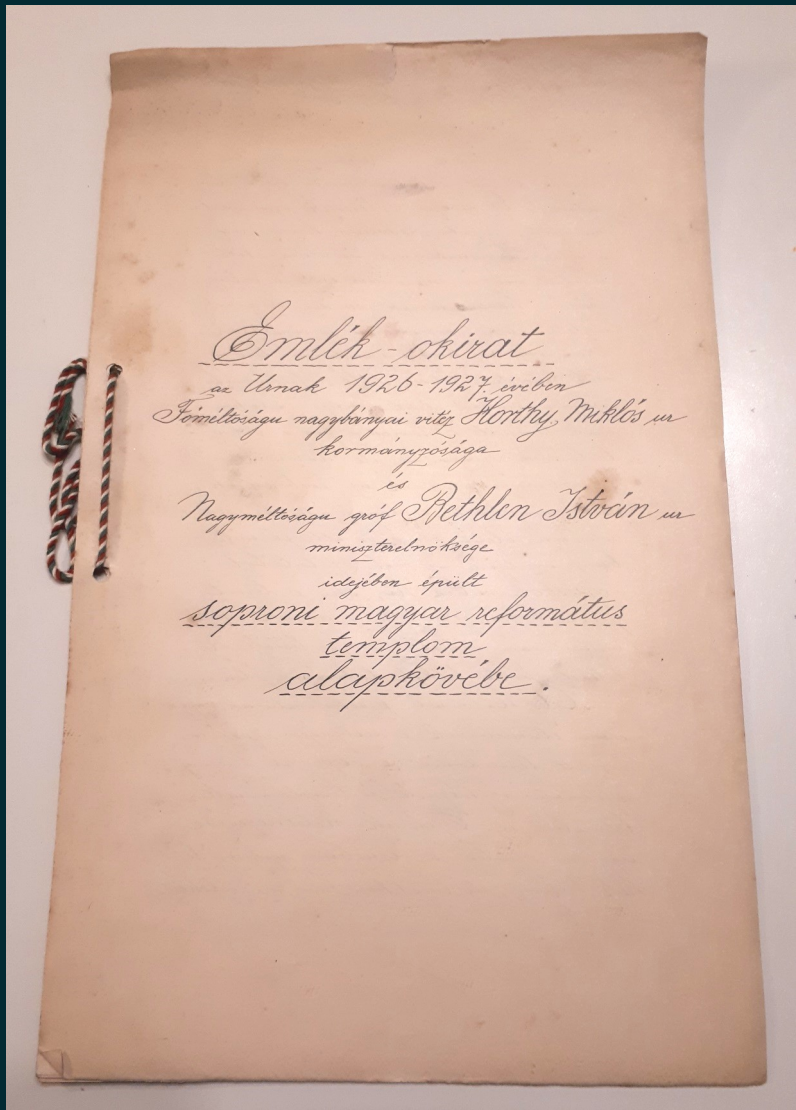 Emlék-okirat
az Urnak 1926-1927. évében
Főméltóságu nagybányai vitéz Horthy Miklós ur
kormányzósága
és
Nagyméltóságu gróf Bethlen István ur
miniszterelnöksége
idejében épült
soproni magyar református
templom
alapkövébe.